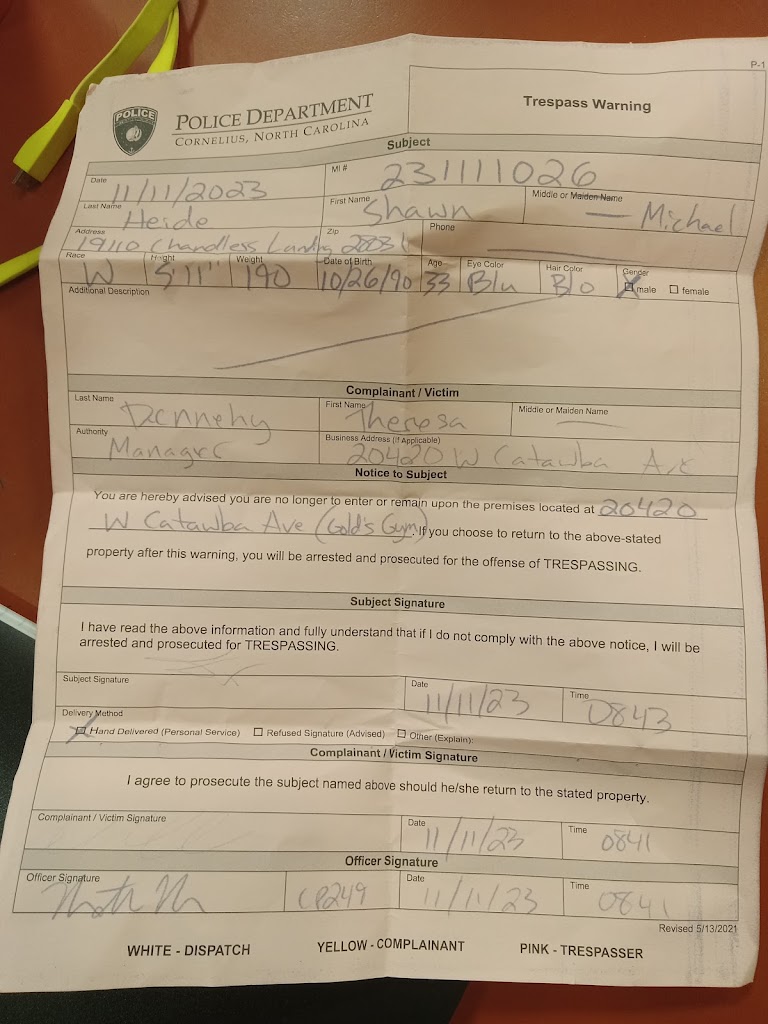 P-1
POLICE
POLICE DEPARTMENT
CORNELIUS, NORTH CAROLINA
Trespass Warning
Subject
Date 11/11/2023 MI # 231111026
Last Name Heide First Name Shawn Middle or Maiden Name — Michael
Address 19110 Chandless Landing Zip Phone —
Race W Height 5'11" Weight 190 Date of Birth 10/26/90 Age 33 Eye Color Blu Hair Color Blo Gender ☒ male ☐ female
Additional Description
Complainant / Victim
Last Name Dennehy First Name Theresa Middle or Maiden Name —
Authority Manager Business Address (If Applicable) 20420 W Catawba Ave
Notice to Subject
You are hereby advised you are no longer to enter or remain upon the premises located at 20420
W Catawba Ave (Gold's Gym). If you choose to return to the above-stated
property after this warning, you will be arrested and prosecuted for the offense of TRESPASSING.
Subject Signature
I have read the above information and fully understand that if I do not comply with the above notice, I will be
arrested and prosecuted for TRESPASSING.
Subject Signature Date 11/11/23 Time 0843
Delivery Method
☒ Hand Delivered (Personal Service) ☐ Refused Signature (Advised) ☐ Other (Explain):
Complainant / Victim Signature
I agree to prosecute the subject named above should he/she return to the stated property.
Complainant / Victim Signature Date 11/11/23 Time 0841
Officer Signature
Officer Signature CP249 Date 11/11/23 Time 0841
Revised 5/13/2021
WHITE - DISPATCH YELLOW - COMPLAINANT PINK - TRESPASSER